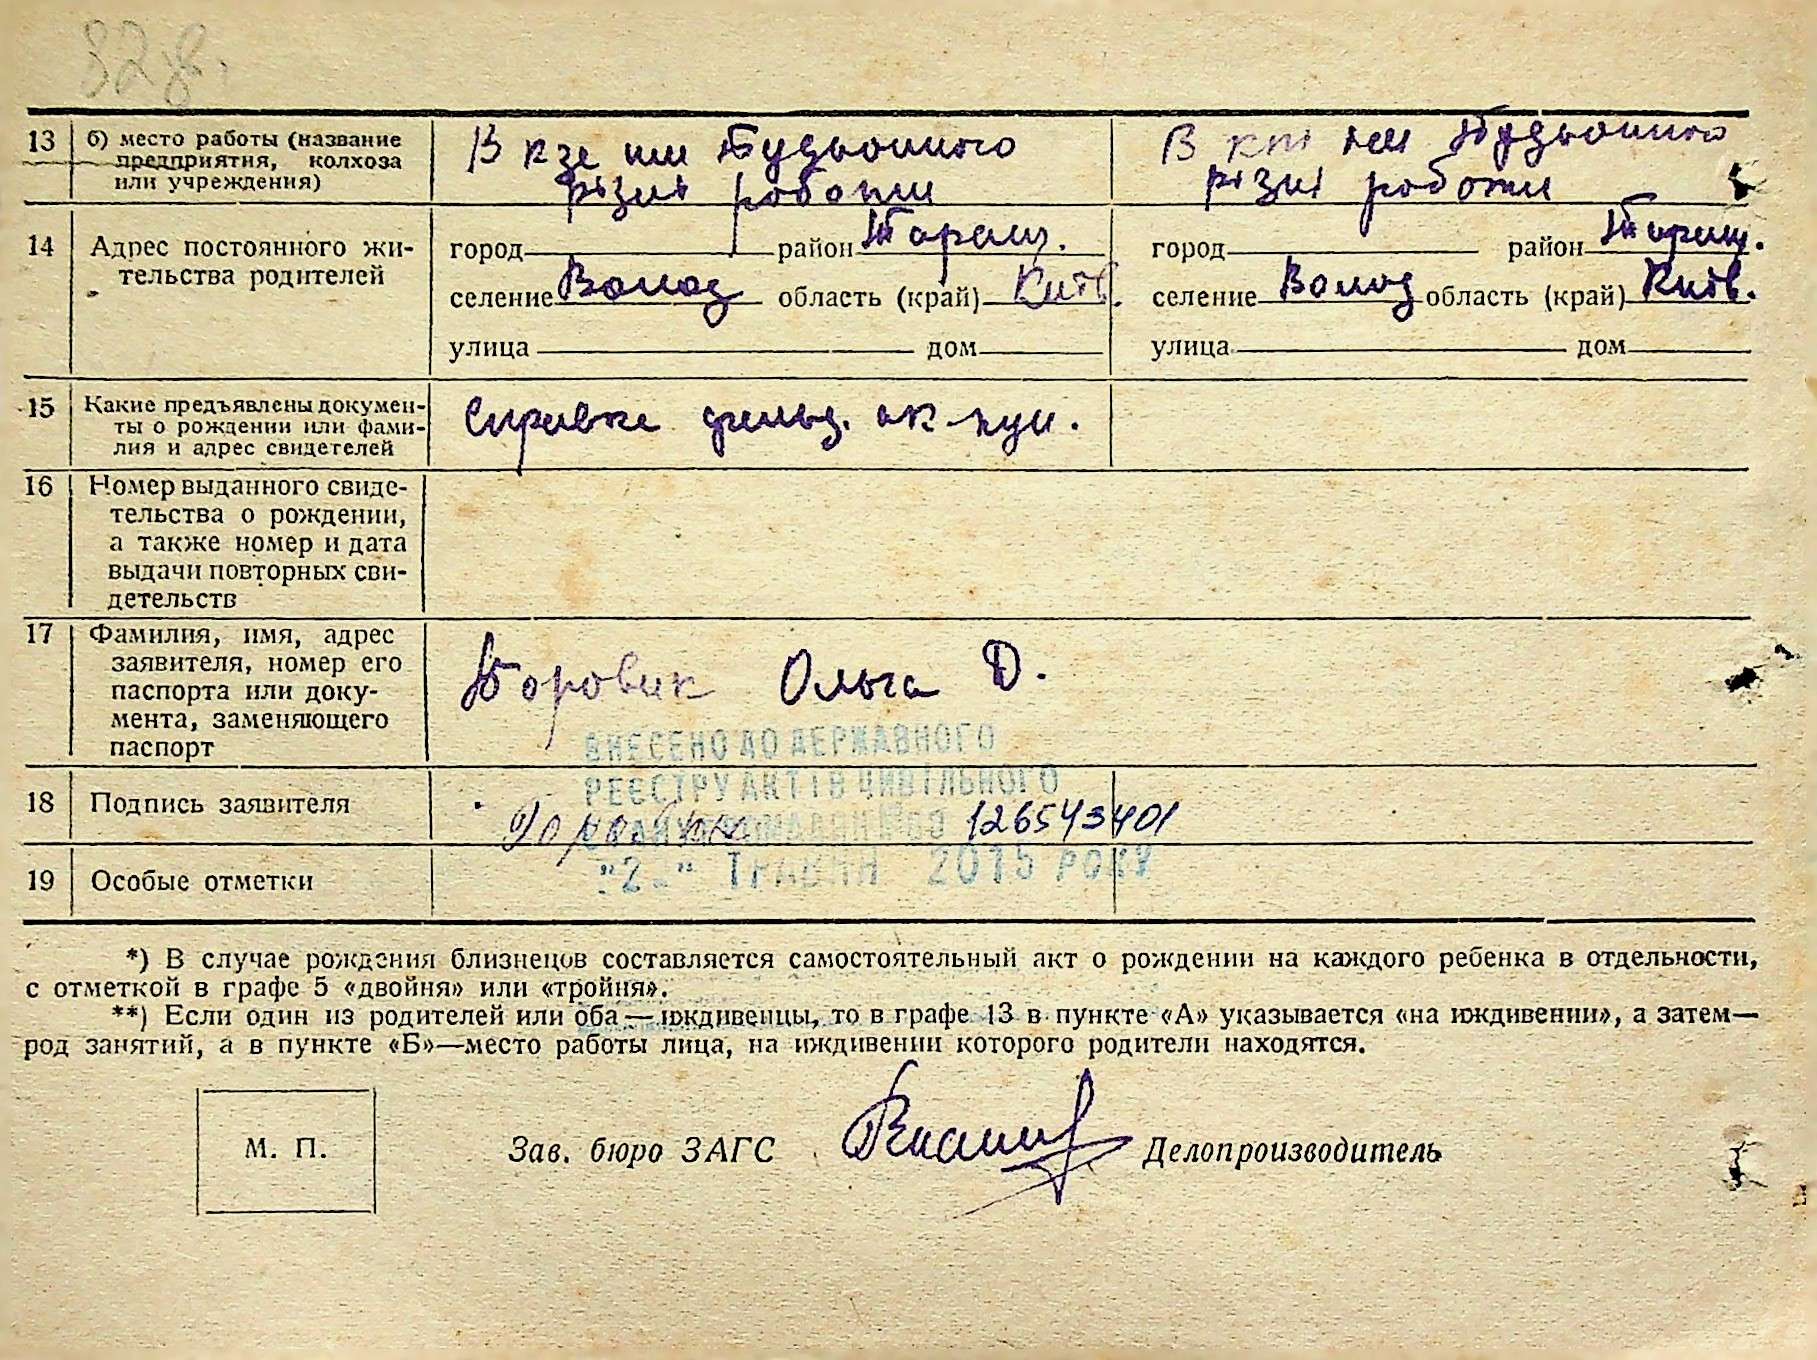 32
13 б) место работы (название предприятия, колхоза или учреждения) В кзе им Будьонного різні роботи В кгі ім Будьонного різні роботи
14 Адрес постоянного жительства родителей
город район Таращ. город район Таращ.
селение Волод область (край) Київ. селение Волод область (край) Київ.
улица дом улица дом
15 Какие предъявлены документы о рождении или фамилия и адрес свидетелей Справка фельд. ак пун.
16 Номер выданного свидетельства о рождении, а также номер и дата выдачи повторных свидетельств
17 Фамилия, имя, адрес заявителя, номер его паспорта или документа, заменяющего паспорт Боровик Ольга Д.
ВНЕСЕНО ДО ДЕРЖАВНОГО
РЕЄСТРУ АКТІВ ЦИВІЛЬНОГО
18 Подпись заявителя
СТАНУ ГРОМАДЯН №00 126543401
19 Особые отметки
"2" ТРАВНЯ 2015 РОКУ
*) В случае рождения близнецов составляется самостоятельный акт о рождении на каждого ребенка в отдельности,
с отметкой в графе 5 «двойня» или «тройня».
**) Если один из родителей или оба — иждивенцы, то в графе 13 в пункте «А» указывается «на иждивении», а затем—
род занятий, а в пункте «Б»—место работы лица, на иждивении которого родители находятся.
М. П. Зав. бюро ЗАГС Делопроизводитель